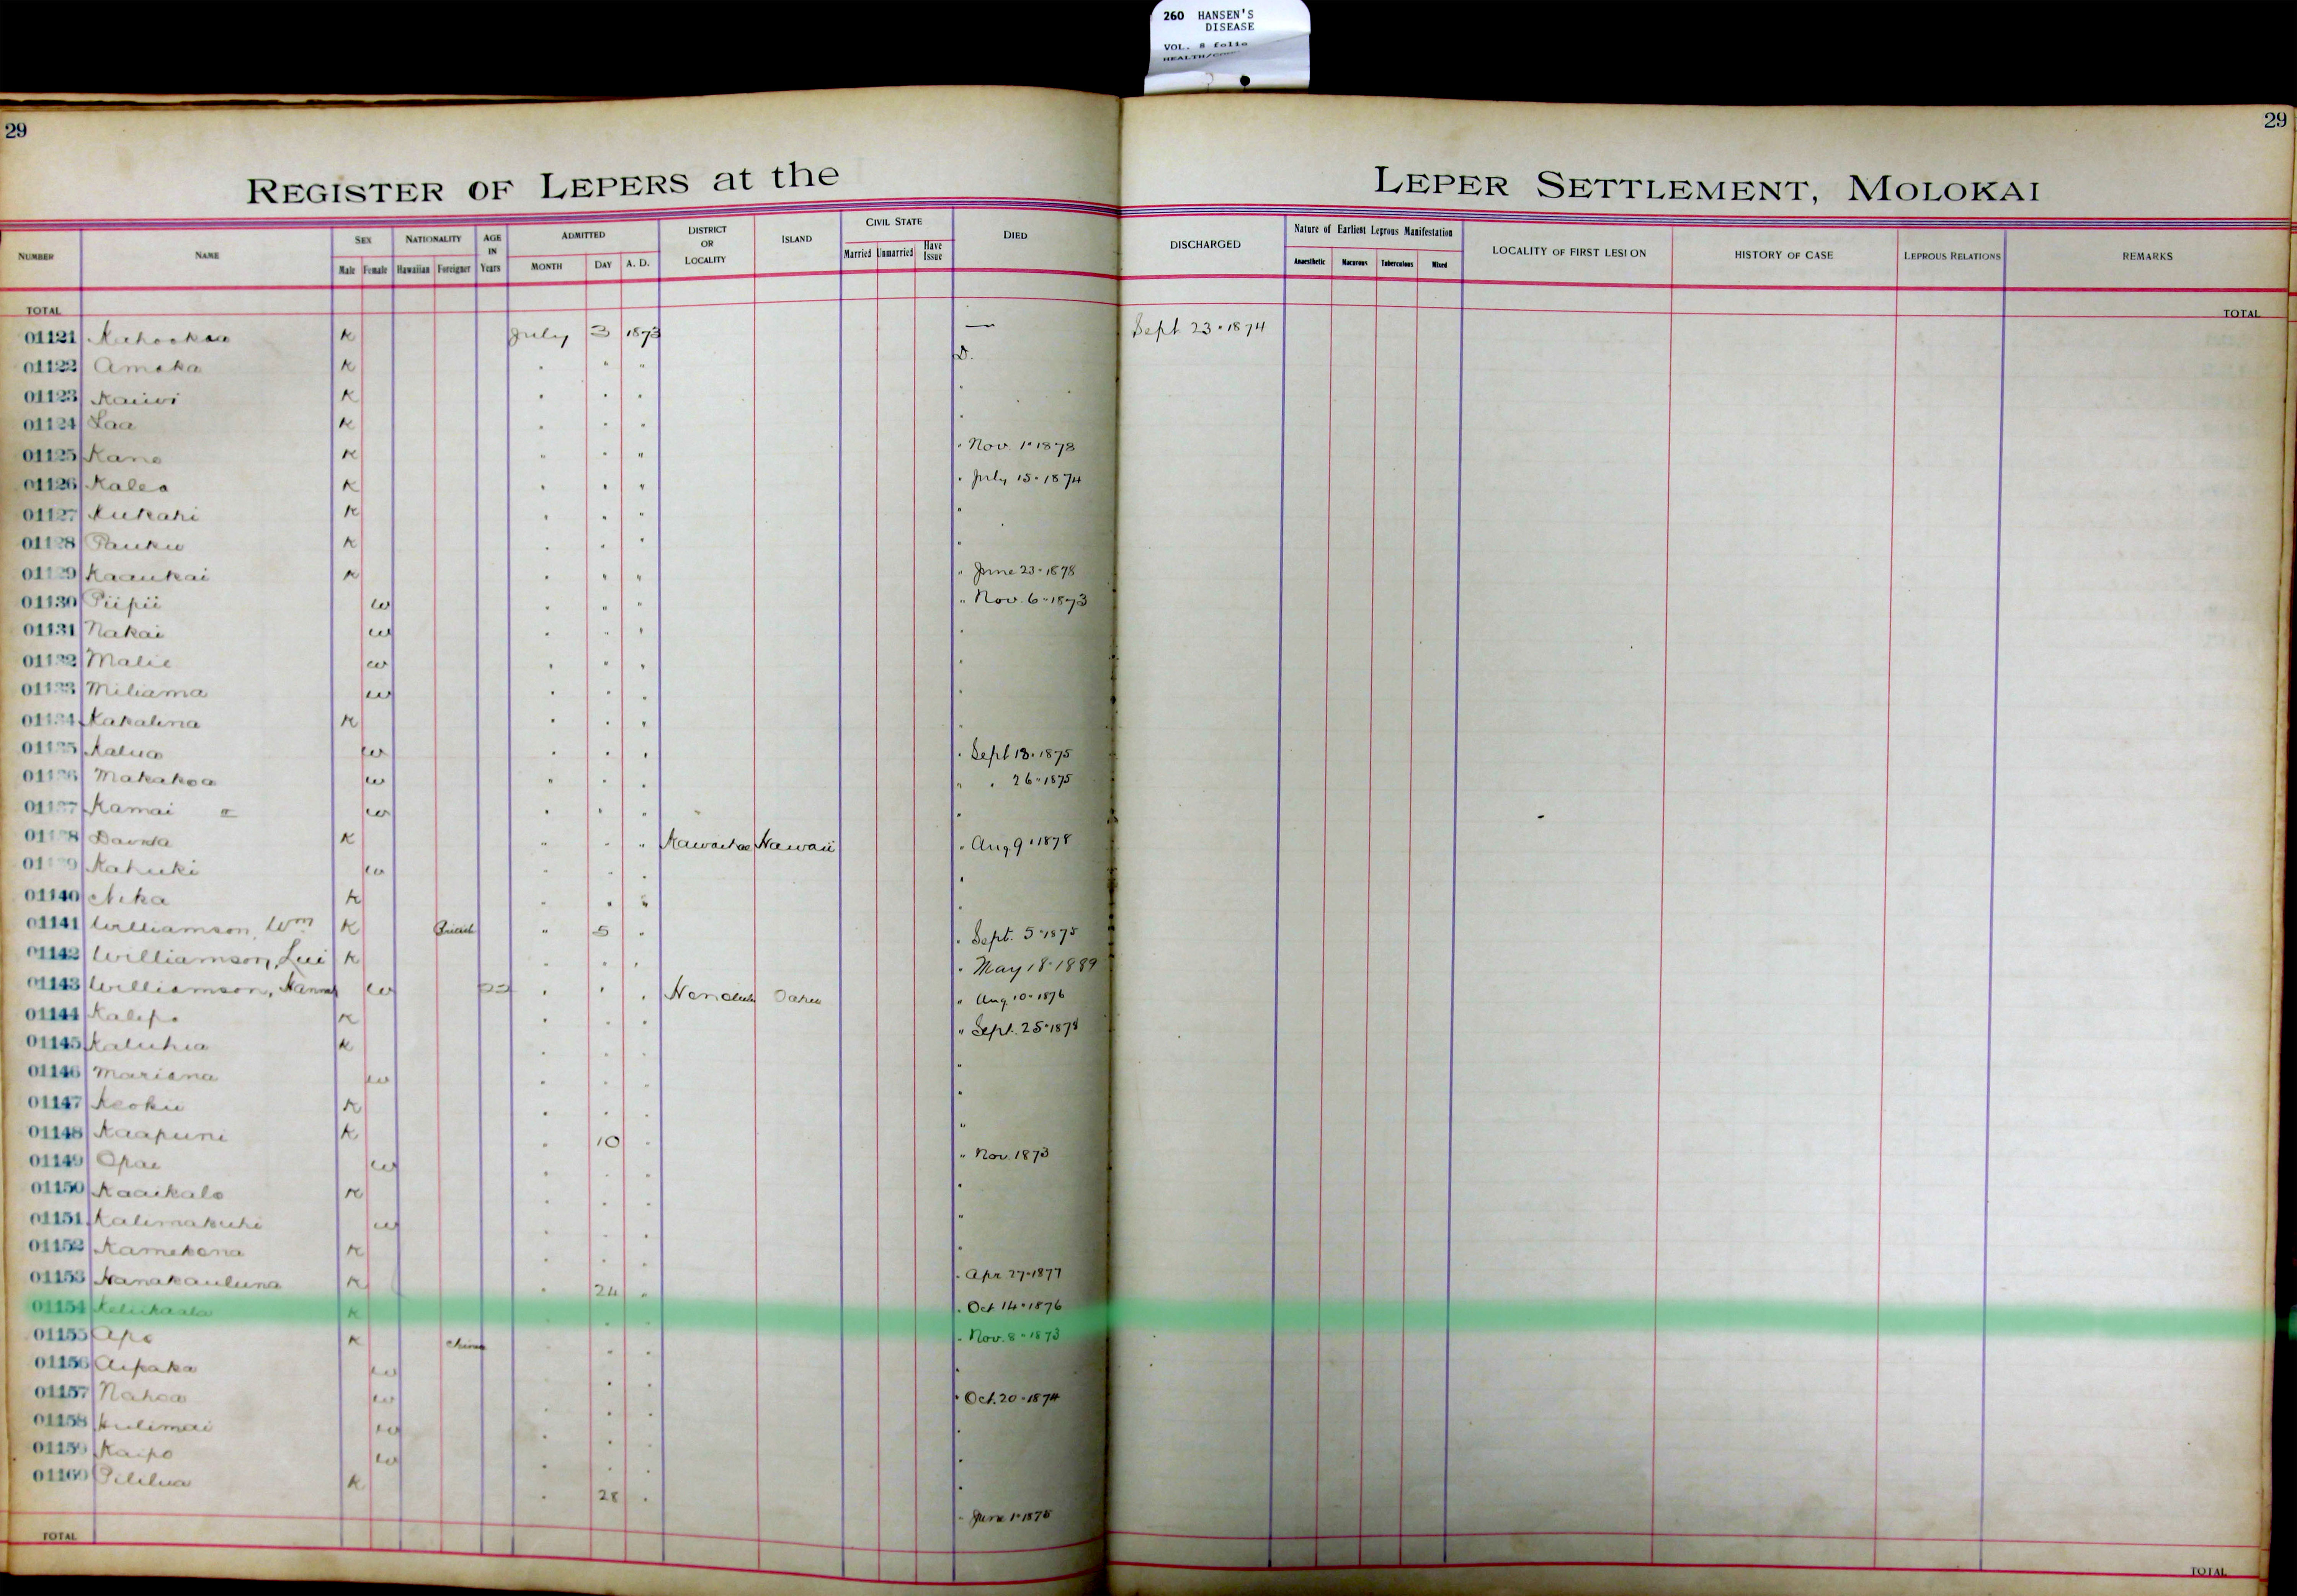 260 HANSEN'S
DISEASE
VOL. 8 folio
29
29
REGISTER OF LEPERS at the LEPER SETTLEMENT, MOLOKAI
NUMBER NAME SEX NATIONALITY AGE IN Years ADMITTED DISTRICT OR LOCALITY ISLAND CIVIL STATE DIED DISCHARGED Nature of Earliest Leprous Manifestation LOCALITY OF FIRST LESION HISTORY OF CASE LEPROUS RELATIONS REMARKS
Male Female Hawaiian Foreigner MONTH DAY A. D. Married Unmarried Have Issue Anaesthetic Macurous Tuberculous Mixed
TOTAL TOTAL
01121 K July 3 1873 — Sept 23 · 1874
01122 Amaka K " " " D.
01123 Kaiwi K " " " "
01124 Laa K " " " "
01125 Kane K " " " " Nov. 1 · 1878
01126 Kalea K " " " " July 15 · 1874
01127 Kukahi K " " " "
01128 Pauku K " " " "
01129 Kaaukai K " " " " June 23 · 1878
01130 Piipii w " " " " Nov. 6 · 1873
01131 Nakai w " " " "
01132 Malie w " " " "
01133 Miliama w " " " "
01134 Kakalina K " " " "
01135 Kalua w " " " " Sept 18 · 1875
01136 Makakoa w " " " " " 26 · 1875
01137 Kamai w " " " "
01138 K " " " Kawaihae Hawaii " Aug 9 · 1878
01139 Kahuki w " " " "
01140 Nika K " " " "
01141 Williamson, Wm K British " 5 " " Sept. 5 · 1875
01142 Williamson, Lui K " " " " May 18 · 1889
01143 Williamson, Hannah w " " " Honolulu Oahu " Aug. 10 · 1876
01144 Kalepo K " " " " Sept. 25 · 1878
01145 Kaluhia K " " " "
01146 Mariana w " " " "
01147 Keoku K " " " "
01148 Kaapuni K " 10 " "
01149 Opae w " " " " Nov. 1873
01150 Kaaikalo K " " " "
01151 Kalimakuhi w " " " "
01152 Kamekona K " " " "
01153 Nanakauluna K " 24 " " Apr 27 · 1877
01154 Keliikaala K " " " Oct 14 · 1876
01155 Apo K China " " " Nov. 8 · 1873
01156 Aipaka w " " "
01157 Nahoa w " " " " Oct. 20 · 1874
01158 Kulimai w " " " "
01159 Kaipo w " " " "
01160 Pililua K " 28 " "
June 1 · 1875
TOTAL TOTAL